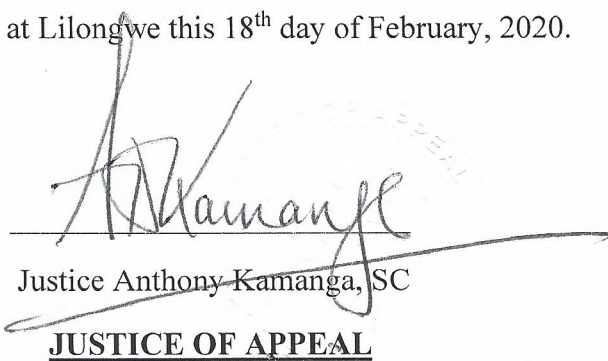 at Lilongwe this 18th day of February, 2020.
OF APPEAL
AKamanga
Justice Anthony Kamanga, SC
JUSTICE OF APPEAL